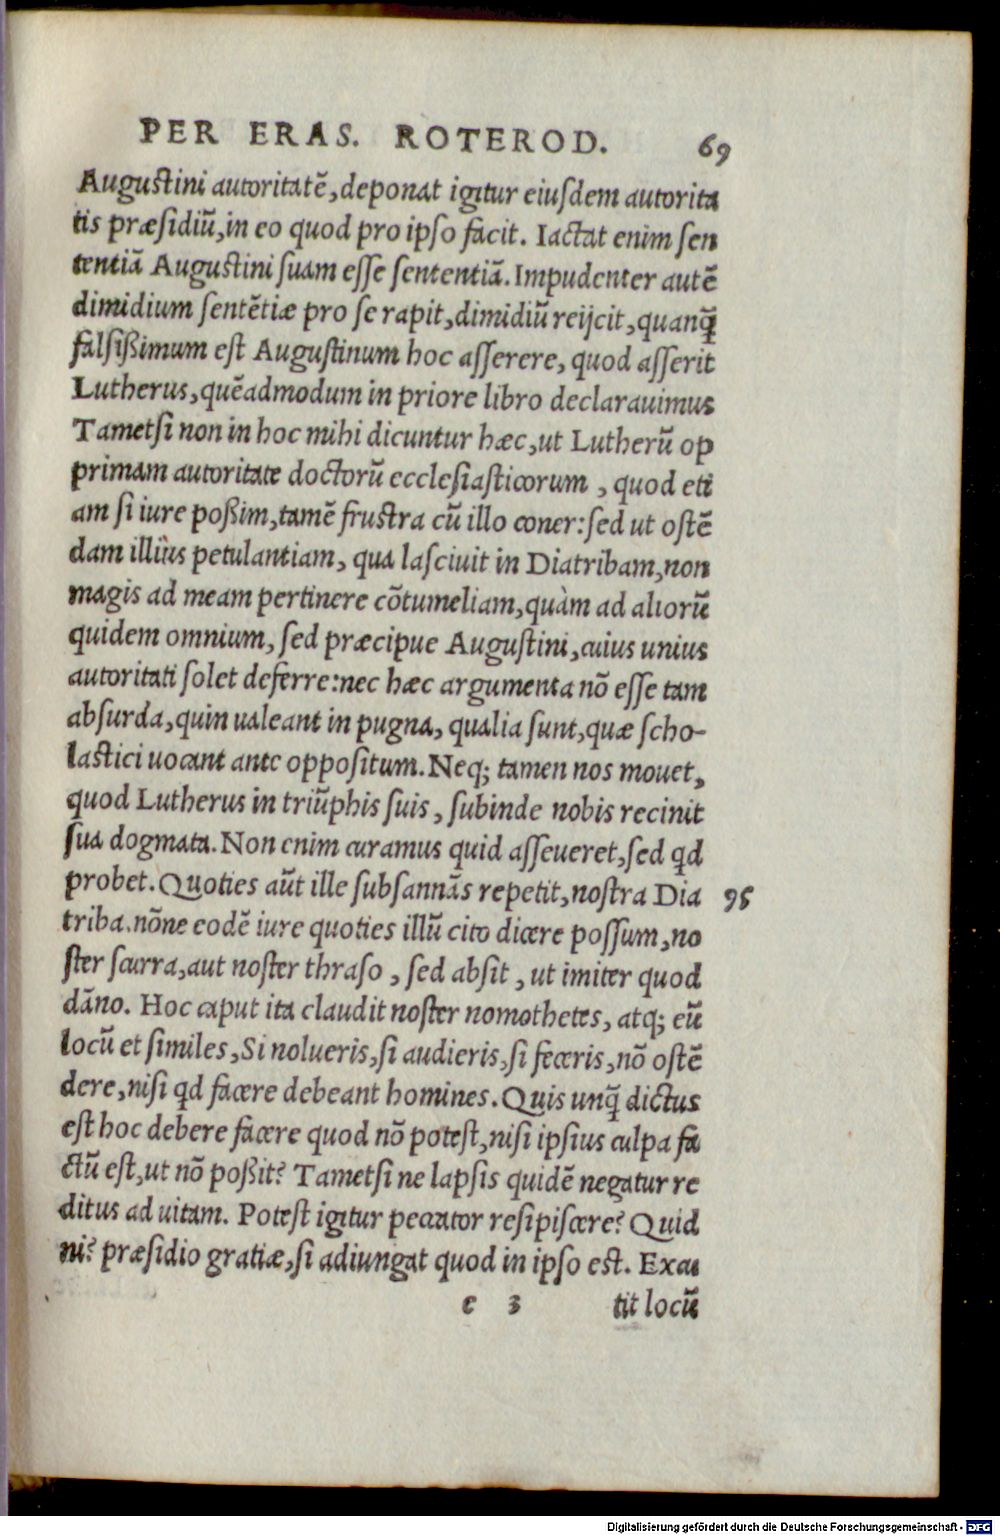 PER ERAS. ROTEROD. 69
Augustini autoritatē, deponat igitur eiusdem autorita
tis præsidiū, in eo quod pro ipso facit. Iactat enim sen
tentiā Augustini suam esse sententiā. Impudenter autē
dimidium sentētiæ pro se rapit, dimidiū reijcit, quanq̃
falsißimum est Augustinum hoc asserere, quod asserit
Lutherus, quēadmodum in priore libro declarauimus
Tametsi non in hoc mihi dicuntur hæc, ut Lutherū op
primam autoritate doctorū ecclesiasticorum, quod eti
am si iure poßim, tamē frustra cū illo coner: sed ut ostē
dam illius petulantiam, qua lasciuit in Diatribam, non
magis ad meam pertinere cōtumeliam, quàm ad aliorū
quidem omnium, sed præcipue Augustini, cuius unius
autoritati solet deferre: nec hæc argumenta nō esse tam
absurda, quin ualeant in pugna, qualia sunt, quæ scho-
lastici uocant ante oppositum. Neq; tamen nos mouet,
quod Lutherus in triūphis suis, subinde nobis recinit
sua dogmata. Non enim curamus quid asseueret, sed qd
probet. Quoties aūt ille subsannās repetit, nostra Dia 95
triba. nōne eodē iure quoties illū cito dicere possum, no
ster scurra, aut noster thraso, sed absit, ut imiter quod
dāno. Hoc caput ita claudit noster nomothetes, atq; eū
locū et similes, Si nolueris, si audieris, si feceris, nō ostē
dere, nisi qd facere debeant homines. Quis unq̃ dictus
est hoc debere facere quod nō potest, nisi ipsius culpa fa
ctū est, ut nō poßit? Tametsi ne lapsis quidē negatur re
ditus ad uitam. Potest igitur peccator resipiscere? Quid
ni? præsidio gratiæ, si adiungat quod in ipso est. Excu
e 3 tit locū
Digitalisierung gefördert durch die Deutsche Forschungsgemeinschaft - DFG